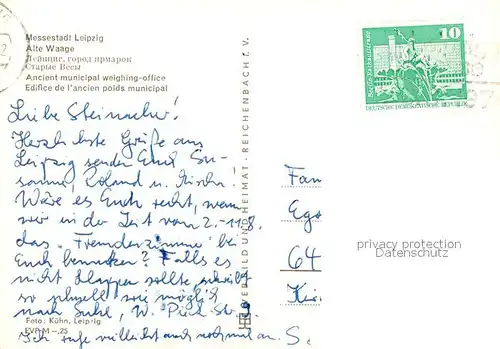 Messestadt Leipzig
Alte Waage
Лейпциг, город ярмарок
Старые Весы
Ancient municipal weighing-office
Edifice de l'ancien poids municipal
Liebe Steinacher!
Herzlichste Grüße aus
Leipzig senden Euch Su-
sanne, Roland u. Mischa!
Wäre es Euch recht, wenn
wir in der Zeit vom 2.-11.8.
das „Fremdenzimmer" bei
Euch benutzen? Falls es
nicht klappen sollte, schreibt
so schnell wie möglich
nach Suhl, W. Pieck Str.
Ich rufe vielleicht auch nochmal an. S.
Foto: Kühn, Leipzig
EVP M -,25
BILD UND HEIMAT · REICHENBACH I. V.
10
DEUTSCHE DEMOKRATISCHE REPUBLIK
Fam
Ego
64
Kir
privacy protection
Datenschutz